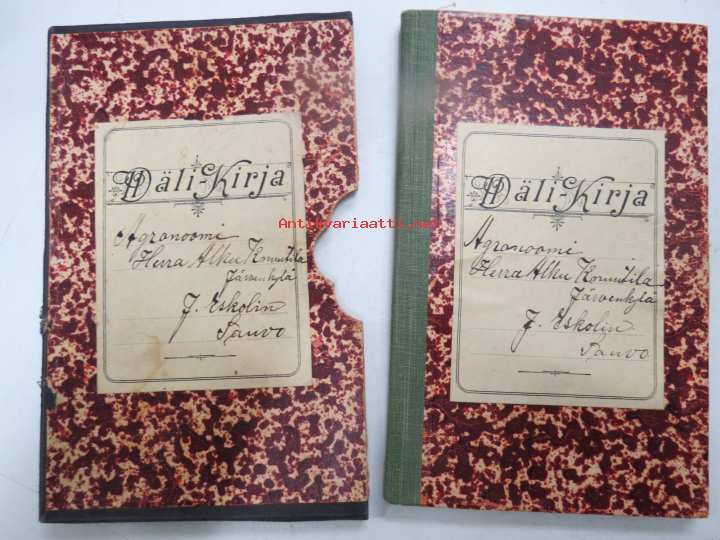 Wäli-Kirja
Agronoomi
Herra Alku Konutila
Järvenkylä
J. Eskolin
Sauvo
Wäli-Kirja
Agronoomi
Herra Alku Konutila
Järvenkylä
J. Eskolin
Sauvo
Antikvariaatti.net